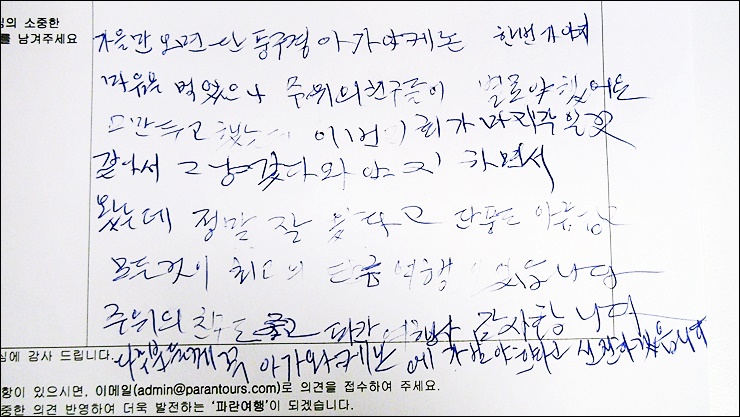 님의 소중한
를 남겨주세요
가을만 오면 단풍구경 아가와케논 한번 가야지
마음을 먹었으나 주위의 친구들이 별로야 했어
그만두고 했는데 이번이 회가 마지막일것
같아서 그냥 갔다와야지 하면서
왔는데 정말 잘 왔다고 단풍도 아름답고
모든것이 최고의 단풍여행 이였습니다
주위의 친구도 파란여행사 감사합니다
심에 감사 드립니다.
께 꼭 아가와케논에 가봐야한다고 선전하겠습니다
항이 있으시면, 이메일(admin@parantours.com)로 의견을 접수하여 주세요.
중한 의견 반영하여 더욱 발전하는 '파란여행'이 되겠습니다.